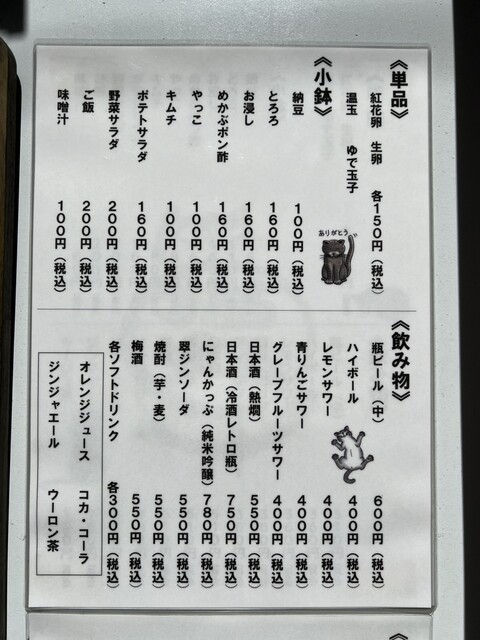 《単品》
紅花卵 生卵 各150円(税込)
温玉 ゆで玉子
ありがとう
《小鉢》
納豆 100円(税込)
とろろ 160円(税込)
お浸し 160円(税込)
めかぶポン酢 160円(税込)
やっこ 100円(税込)
キムチ 100円(税込)
ポテトサラダ 160円(税込)
野菜サラダ 200円(税込)
ご飯 200円(税込)
味噌汁 100円(税込)
《飲み物》
瓶ビール(中) 600円(税込)
ハイボール 400円(税込)
レモンサワー 400円(税込)
青りんごサワー 400円(税込)
グレープフルーツサワー 400円(税込)
日本酒(熱燗) 550円(税込)
日本酒(冷酒レトロ瓶) 750円(税込)
にゃんかっぷ(純米吟醸) 780円(税込)
翠ジンソーダ 550円(税込)
焼酎(芋・麦) 550円(税込)
梅酒 550円(税込)
各ソフトドリンク 各300円(税込)
オレンジジュース コカ・コーラ
ジンジャエール ウーロン茶